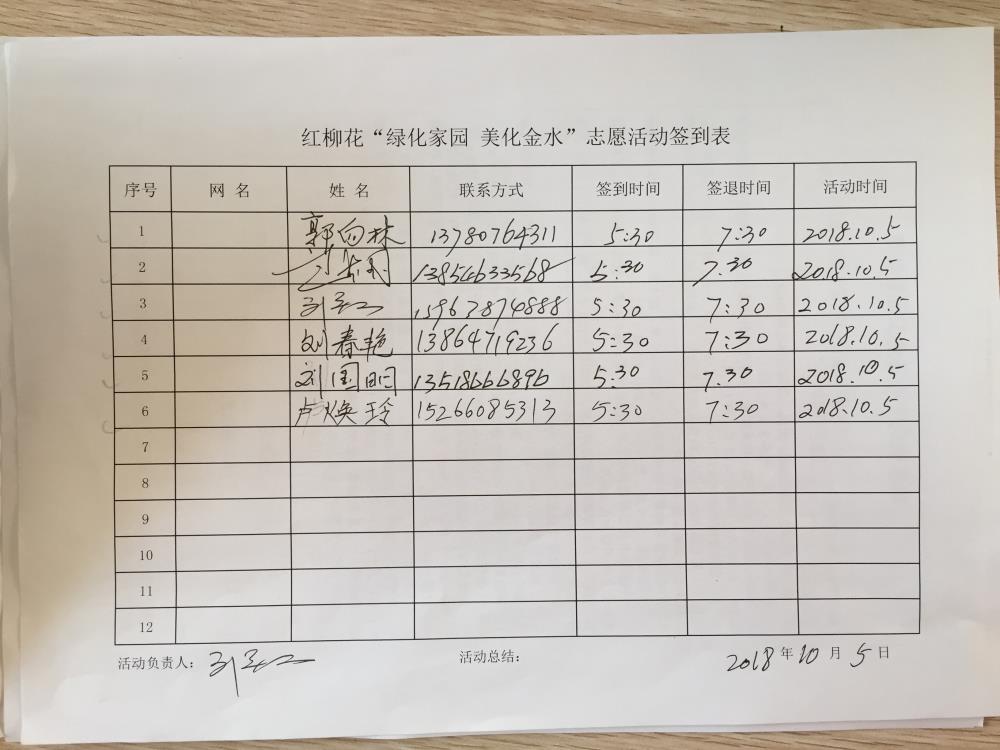 红柳花“绿化家园 美化金水”志愿活动签到表
序号 网 名 姓 名 联系方式 签到时间 签退时间 活动时间
1 郭向林 13780764311 5:30 7:30 2018.10.5
2 13854633568 5:30 7.30 2018.10.5
3 15967874888 5:30 7:30 2018.10.5
4 刘春艳 13864719236 5:30 7:30 2018.10.5
5 刘国昭 13518666896 5:30 7.30 2018.10.5
6 卢焕玲 15266085313 5:30 7:30 2018.10.5
7
8
9
10
11
12
活动负责人: 活动总结: 2018年10月5日